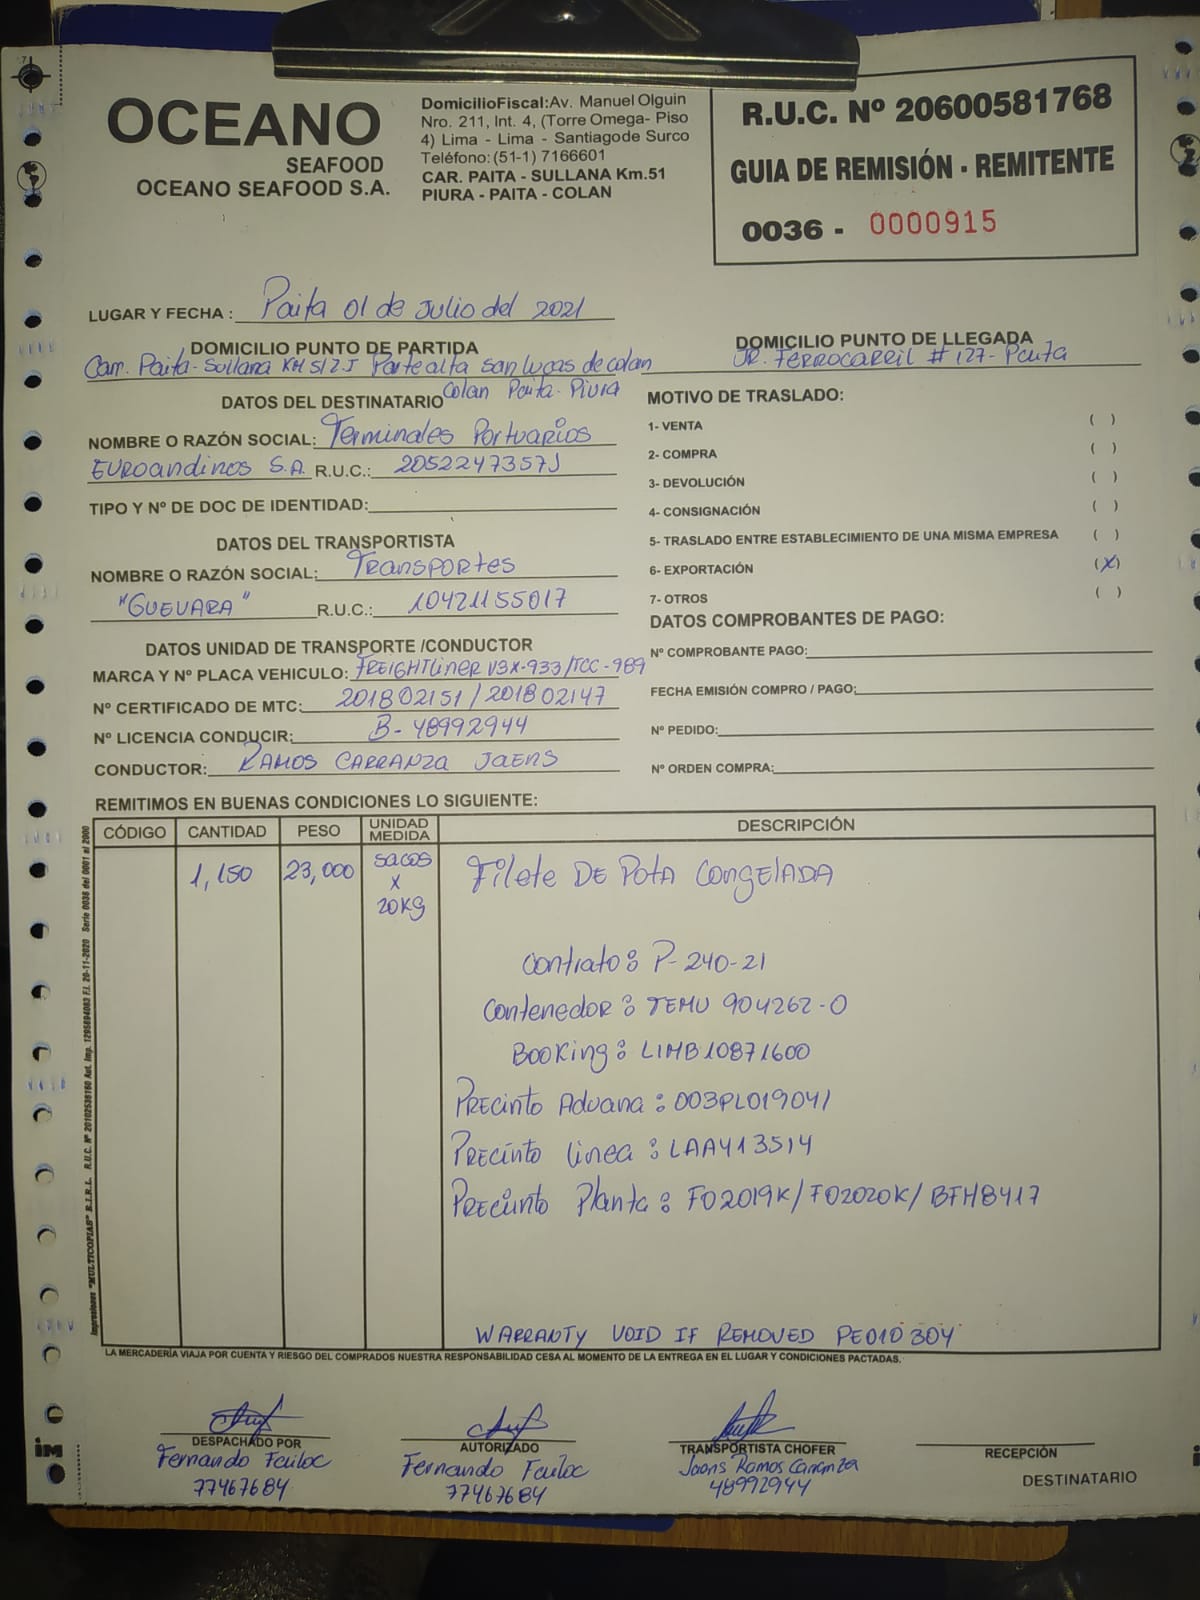 OCEANO
SEAFOOD
OCEANO SEAFOOD S.A.
DomicilioFiscal:Av. Manuel Olguin
Nro. 211, Int. 4, (Torre Omega- Piso
4) Lima - Lima - Santiagode Surco
Teléfono:(51-1) 7166601
CAR. PAITA - SULLANA Km.51
PIURA - PAITA - COLAN
R.U.C. Nº 20600581768
GUIA DE REMISIÓN - REMITENTE
0036 - 0000915
LUGAR Y FECHA : Paita 01 de Julio del 2021
DOMICILIO PUNTO DE PARTIDA
Carr. Paita- Sullana KM 51 Z.I Parte alta san lucas de colan
Colan Paita- Piura
DOMICILIO PUNTO DE LLEGADA
JR. FERROCARRIL # 127- Paita
DATOS DEL DESTINATARIO
NOMBRE O RAZÓN SOCIAL: Terminales Portuarios
EUROandinos S.A. R.U.C.: 20522473571
TIPO Y Nº DE DOC DE IDENTIDAD:
DATOS DEL TRANSPORTISTA
NOMBRE O RAZÓN SOCIAL: TRANSPORTES
"GUEVARA" R.U.C.: 10421155017
DATOS UNIDAD DE TRANSPORTE /CONDUCTOR
MARCA Y Nº PLACA VEHICULO: FREIGHTLiner V3X-933/TCC-989
Nº CERTIFICADO DE MTC: 201802151/201802147
Nº LICENCIA CONDUCIR: B-48992944
CONDUCTOR: RAMOS CARRANZA JAENS
MOTIVO DE TRASLADO:
1- VENTA ( )
2- COMPRA ( )
3- DEVOLUCIÓN ( )
4- CONSIGNACIÓN ( )
5- TRASLADO ENTRE ESTABLECIMIENTO DE UNA MISMA EMPRESA ( )
6- EXPORTACIÓN (X)
7- OTROS ( )
DATOS COMPROBANTES DE PAGO:
Nº COMPROBANTE PAGO:
FECHA EMISIÓN COMPRO / PAGO:
Nº PEDIDO:
Nº ORDEN COMPRA:
REMITIMOS EN BUENAS CONDICIONES LO SIGUIENTE:
CÓDIGO CANTIDAD PESO UNIDAD MEDIDA DESCRIPCIÓN
1,150 23,000 sacos x 20KG Filete DE POTA CONGELADA
Contrato: P-240-21
Contenedor: TEMU 904262-0
Booking: LIMB10871600
PRECinto Aduana: 003PL019041
PRECinto Linea: LAA413514
PRECinto Planta: F02019K/F02020K/BFH8417
WARRANTY VOID IF REMOVED PE010304
LA MERCADERÍA VIAJA POR CUENTA Y RIESGO DEL COMPRADOS NUESTRA RESPONSABILIDAD CESA AL MOMENTO DE LA ENTREGA EN EL LUGAR Y CONDICIONES PACTADAS.
DESPACHADO POR
Fernando
77467684
AUTORIZADO
Fernando
77467684
TRANSPORTISTA CHOFER
Jaens Ramos Carranza
48992944
RECEPCIÓN
DESTINATARIO